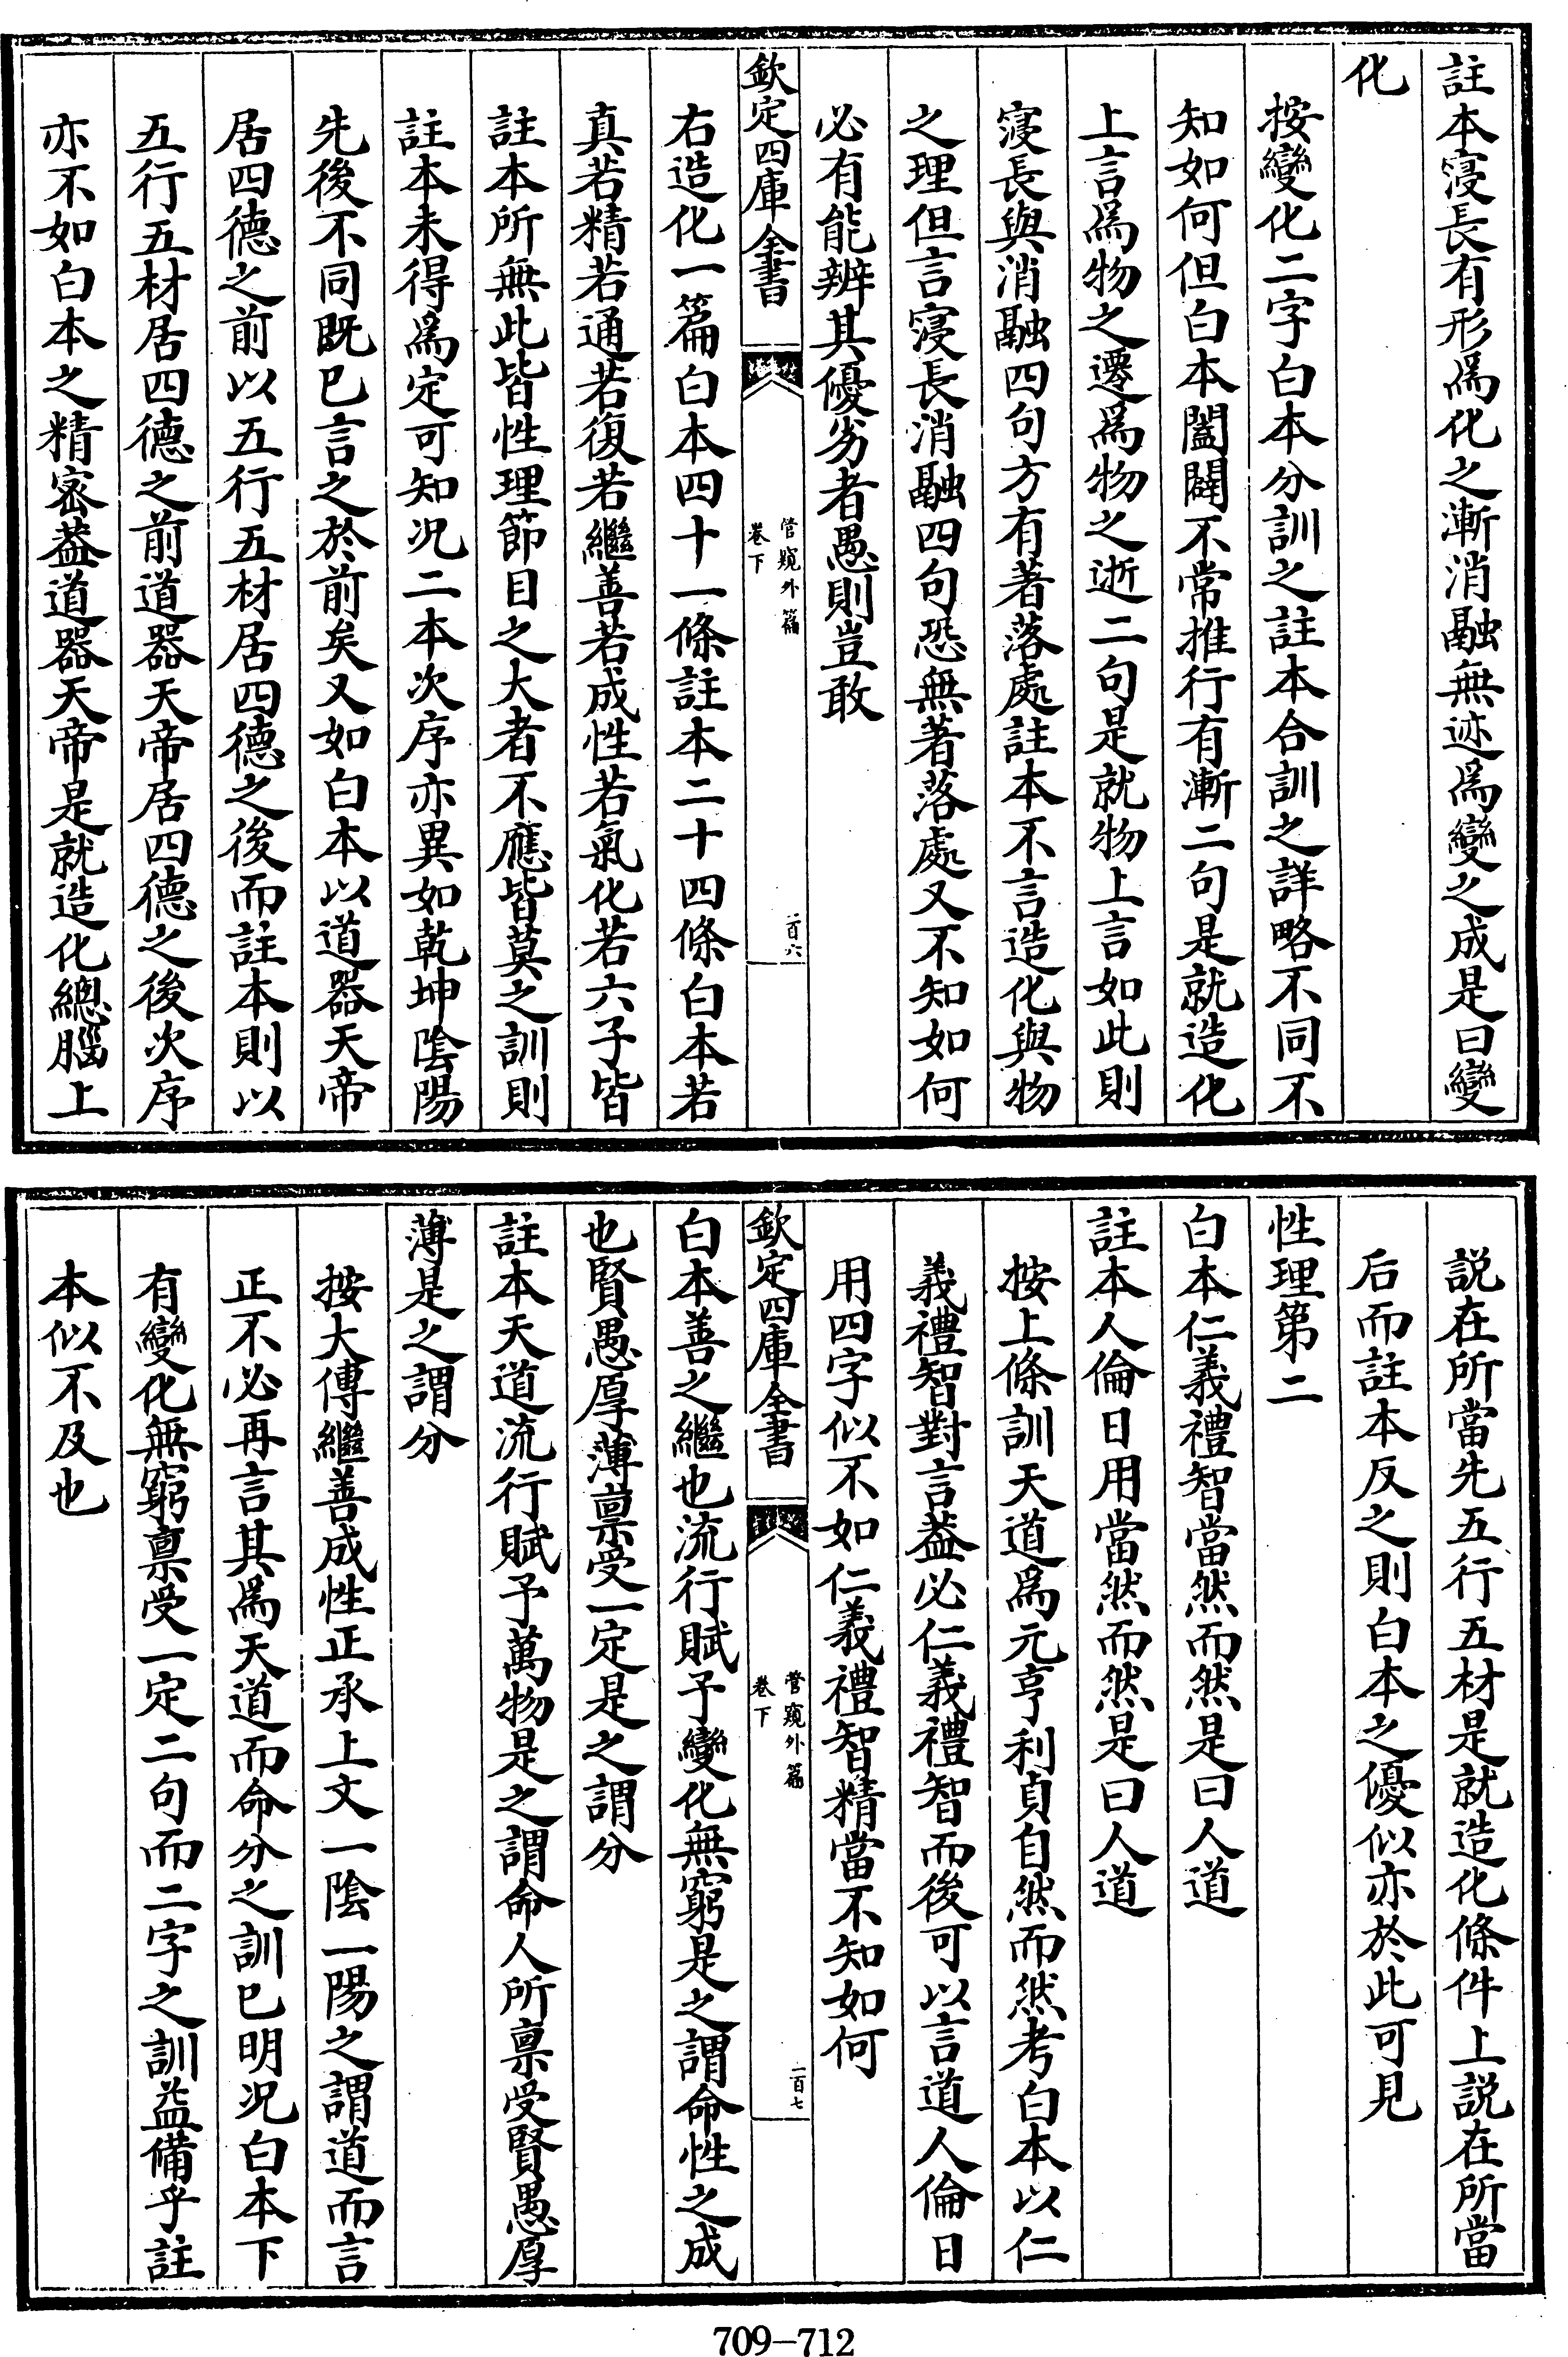 註本寖長有形爲化之漸消融無迹爲變之成是曰變
化
按變化二字白本分訓之註本合訓之詳略不同不
知如何但白本闔闢不常推行有漸二句是就造化
上言爲物之遷爲物之逝二句是就物上言如此則
寖長與消融四句方有著落處註本不言造化與物
之理但言寖長消融四句恐無著落處又不知如何
必有能辨其優劣者愚則豈敢
欽定四庫全書
管窺外篇
卷下
一百六
右造化一篇白本四十一條註本二十四條白本若
真若精若通若復若繼善若成性若氣化若六子皆
註本所無此皆性理節目之大者不應皆莫之訓則
註本未得爲定可知况二本次序亦異如乾坤陰陽
先後不同既已言之於前矣又如白本以道器天帝
居四德之前以五行五材居四德之後而註本則以
五行五材居四德之前道器天帝居四德之後次序
亦不如白本之精宻葢道器天帝是就造化總腦上
説在所當先五行五材是就造化條件上説在所當
后而註本反之則白本之優似亦於此可見
性理第二
白本仁義禮智當然而然是曰人道
註本人倫日用當然而然是曰人道
按上條訓天道爲元亨利貞自然而然考白本以仁
義禮智對言葢必仁義禮智而後可以言道人倫日
用四字似不如仁義禮智精當不知如何
欽定四庫全書
管窺外篇
卷下
一百七
白本善之繼也流行賦予變化無窮是之謂命性之成
也賢愚厚薄禀受一定是之謂分
註本天道流行賦予萬物是之謂命人所禀受賢愚厚
薄是之謂分
按大傳繼善成性正承上文一陰一陽之謂道而言
正不必再言其爲天道而命分之訓已明况白本下
有變化無窮禀受一定二句而二字之訓益備乎註
本似不及也
709-712